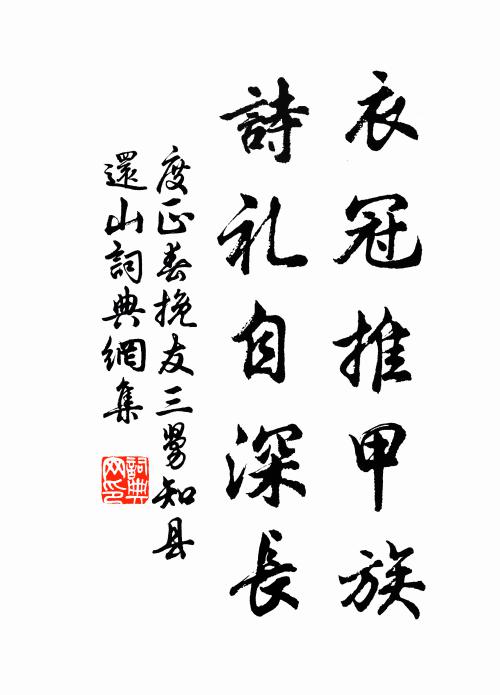 衣冠推甲族
詩礼自深長
度正春挽友三舅知县
還山詞典網集
詞典网印